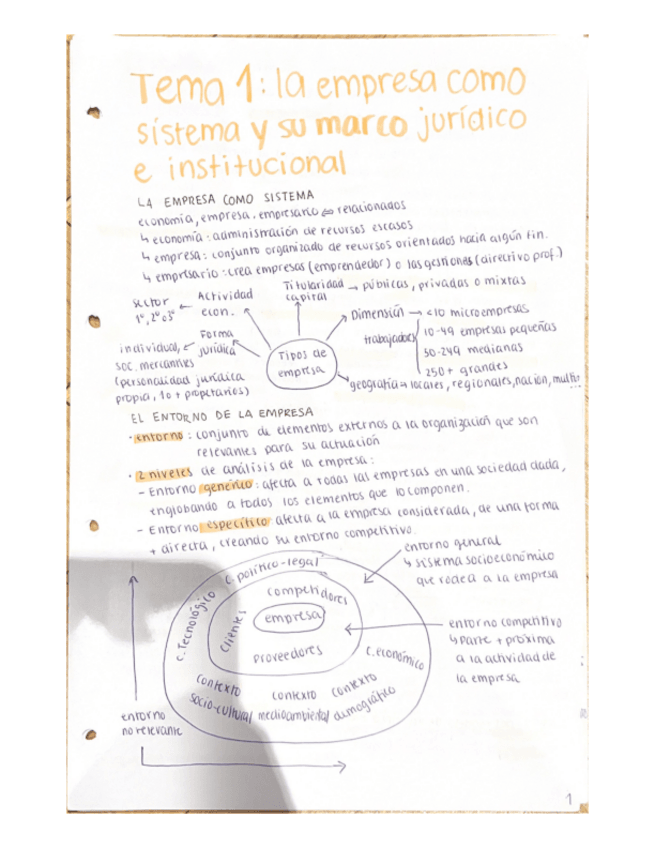 Tema 1: la empresa como
sistema y su marco jurídico
e institucional
LA EMPRESA COMO SISTEMA
economía, empresa, empresario ⇔ relacionados
↳ economía: administración de recursos escasos
↳ empresa: conjunto organizado de recursos orientados hacia algún fin.
↳ empresario: crea empresas (emprendedor) o las gestiones (directivo prof.)
Titularidad → públicas, privadas o mixtas
capital
sector ← Actividad
1º, 2º o 3º econ.
Dimensión → <10 microempresas
trabajadores 10-49 empresas pequeñas
50-249 medianas
250+ grandes
Forma
individual, ← jurídica
soc. mercantiles
(personalidad jurídica
propia, 1 o + propietarios)
Tipos de
empresa
geografía → locales, regionales, nacion, multin.
EL ENTORNO DE LA EMPRESA
· entorno: conjunto de elementos externos a la organización que son
relevantes para su actuación
· 2 niveles de análisis de la empresa:
- Entorno genérico: afecta a todas las empresas en una sociedad dada,
englobando a todos los elementos que lo componen.
- Entorno específico afecta a la empresa considerada, de una forma
+ directa, creando su entorno competitivo.
entorno general
↳ sistema socioeconómico
que rodea a la empresa
c. político-legal
c. Tecnológico
competidores
clientes
empresa
proveedores
c. económico
contexto
socio-cultural
contexto
medioambiental
contexto
demográfico
entorno competitivo
↳ parte + próxima
a la actividad de
la empresa
entorno
no relevante
1